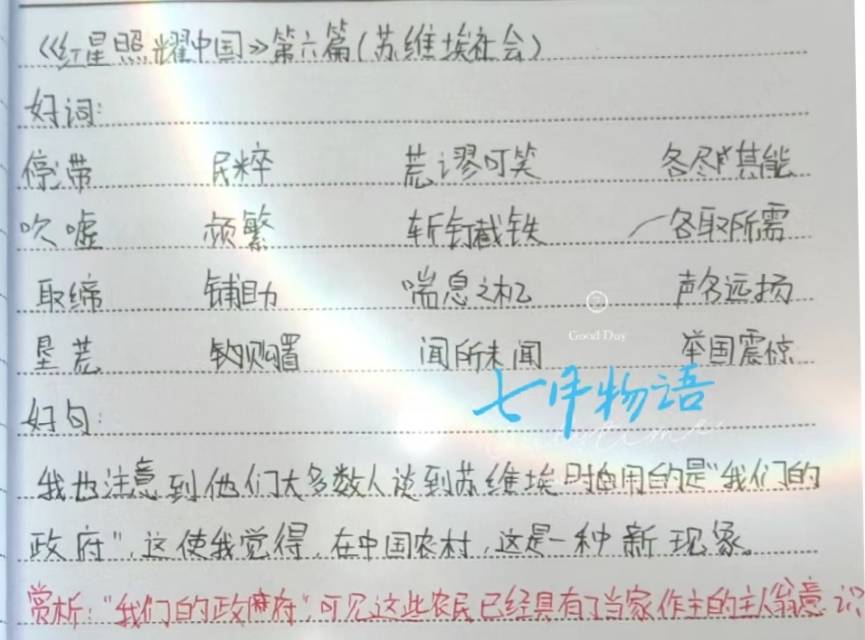 《红星照耀中国》第六篇(苏维埃社会)
好词:
停滞 民粹 荒谬可笑 各尽其能
吹嘘 频繁 斩钉截铁 各取所需
取缔 辅助 喘息之机 声名远扬
垦荒 购置 闻所未闻 举国震惊
Good Day
七月物语
好句:
我也注意到他们大多数人谈到苏维埃时用的是"我们的
政府",这使我觉得,在中国农村,这是一种新现象。
赏析:"我们的政府",可见这些农民已经具有了当家作主的主人翁意识